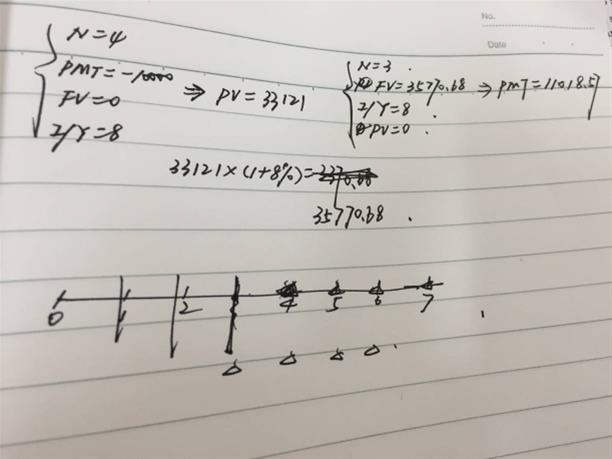 No.
Date
N=4
PMT=-10000
FV=0
I/Y=8
⇒ PV=33121
N=3
FV=35770.68
I/Y=8
PV=0
⇒ PMT=11018.57
33121×(1+8%)=
35770.68
0 1 2 4 5 6 7